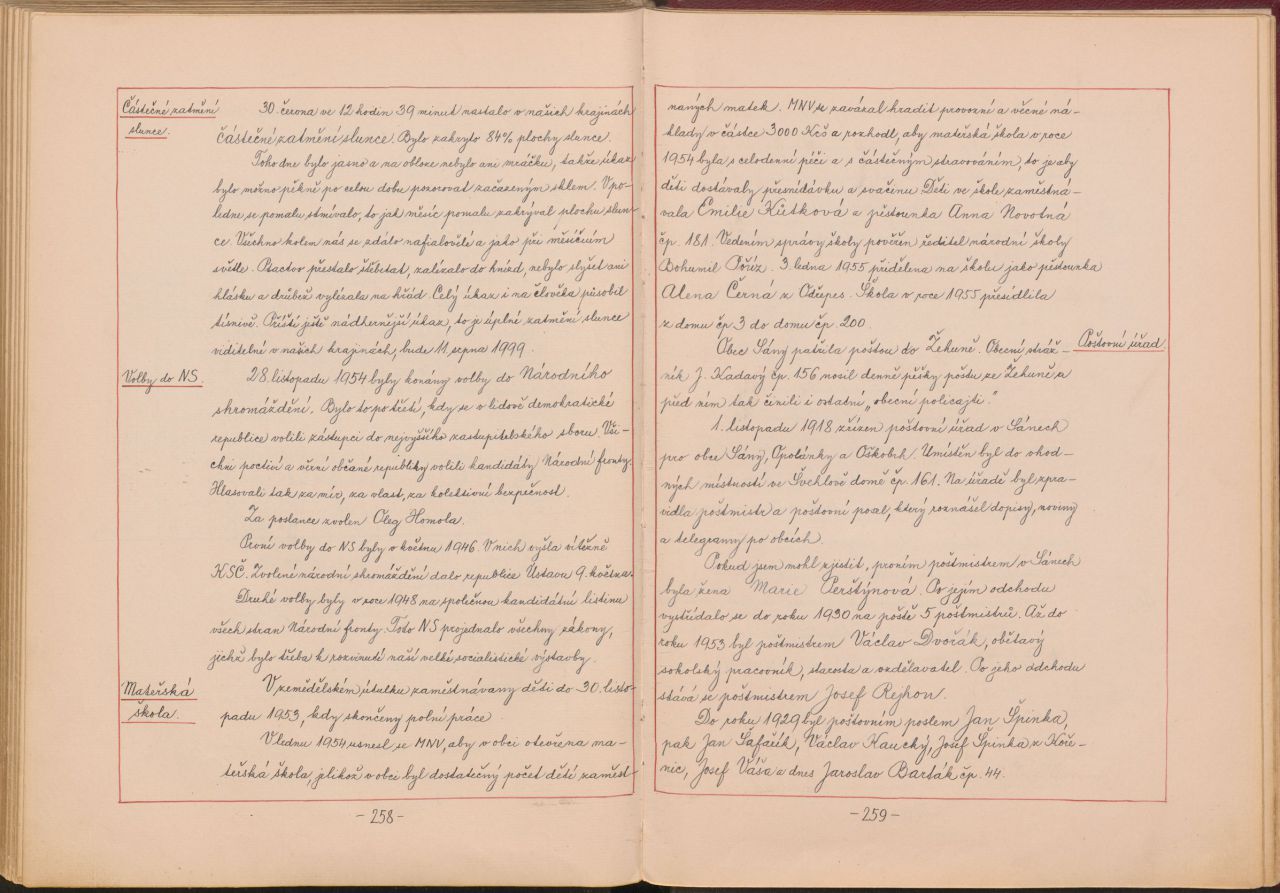 Částečné zatmění
slunce.
30. června ve 12 hodin 39 minut nastalo v našich krajinách
částečné zatmění slunce. Bylo zakryto 84% plochy slunce.
Toho dne bylo jasno a na obloze nebylo ani mráčku, takže úkaz
bylo možno pěkně po celou dobu pozorovat začazeným sklem. V po-
ledne se pomalu stmívalo, to jak měsíc pomalu zakrýval plochu slun-
ce. Všechno kolem nás se zdálo nafialovělé a jako při měsíčním
světle. Ptactvo přestalo štěbetat, zalézalo do hnízd, nebylo slyšet ani
hlásku a drůbež vylézala na hřad. Celý úkaz i na člověka působil
tísnivě. Příští ještě nádhernější úkaz, to je úplné zatmění slunce
viditelné v našich krajinách, bude 11. srpna 1999.
Volby do NS.
28. listopadu 1954 byly konány volby do Národního
shromáždění. Bylo to po třetí, kdy se v lidově demokratické
republice volili zástupci do nejvyššího zastupitelského sboru. Vši-
chni poctiví a věrní občané republiky volili kandidáty Národní fronty.
Hlasovali tak za mír, za vlast, za kolektivní bezpečnost.
Za poslance zvolen Oleg Homola.
První volby do NS byly v květnu 1946. V nich vyšla vítězně
KSČ. Zvolené národní shromáždění dalo republice Ústavu 9. května.
Druhé volby byly v roce 1948 na společnou kandidátní listinu
všech stran Národní fronty. Toto NS projednalo všechny zákony,
jichž bylo třeba k rozvinutí naší velké socialistické výstavby.
Mateřská
škola.
V zemědělském útulku zaměstnávany děti do 30. listo-
padu 1953, kdy skončeny polní práce.
V lednu 1954 usnesl se MNV, aby v obci otevřena ma-
teřská škola, jelikož v obci byl dostatečný počet dětí zaměst-
- 258 -
naných matek. MNV se zavázal hradit provozní a věcné ná-
klady v částce 3000 Kčs a rozhodl, aby mateřská škola v roce
1954 byla s celodenní péčí a s částečným stravováním, to je aby
děti dostávaly přesnídávku a svačinu. Děti ve škole zaměstná-
vala Emilie Kůtková a pěstounka Anna Novotná
čp. 181. Vedením správy školy pověřen ředitel národní školy
Bohumil Pőříz. 3. ledna 1955 přidělena na školu jako pěstounka
Alena Černá z Odřepes. Škola v roce 1955 přesídlila
z domu čp. 3 do domu čp. 200.
Poštovní úřad.
Obec Sány patřila poštou do Žehuně. Obecní stráž-
ník J. Kadavý čp. 156 nosil denně pěšky poštu ze Žehuně a
před ním tak činili i ostatní „obecní policajti."
1. listopadu 1918 zřízen poštovní úřad v Sánech
pro obce Sány, Opolánky a Oškobrh. Umístěn byl do vhod-
ných místností ve Švehlově domě čp. 161. Na úřadě byl zpra-
vidla poštmistr a poštovní posel, který roznášel dopisy, noviny
a telegramy po obcích.
Pokud jsem mohl zjistit, prvním poštmistrem v Sánech
byla žena Marie Perštýnová. Po jejím odchodu
vystřídalo se do roku 1930 na poště 5 poštmistrů. Až do
roku 1953 byl poštmistrem Václav Dvořák, obětavý
sokolský pracovník, starosta a vzdělavatel. Po jeho odchodu
stává se poštmistrem Josef Rejhon.
Do roku 1929 byl poštovním poslem Jan Špinka,
pak Jan Šafařík, Václav Kaucký, Josef Špinka z Koře-
nic, Josef Váša a dnes Jaroslav Barták čp. 44.
- 259 -